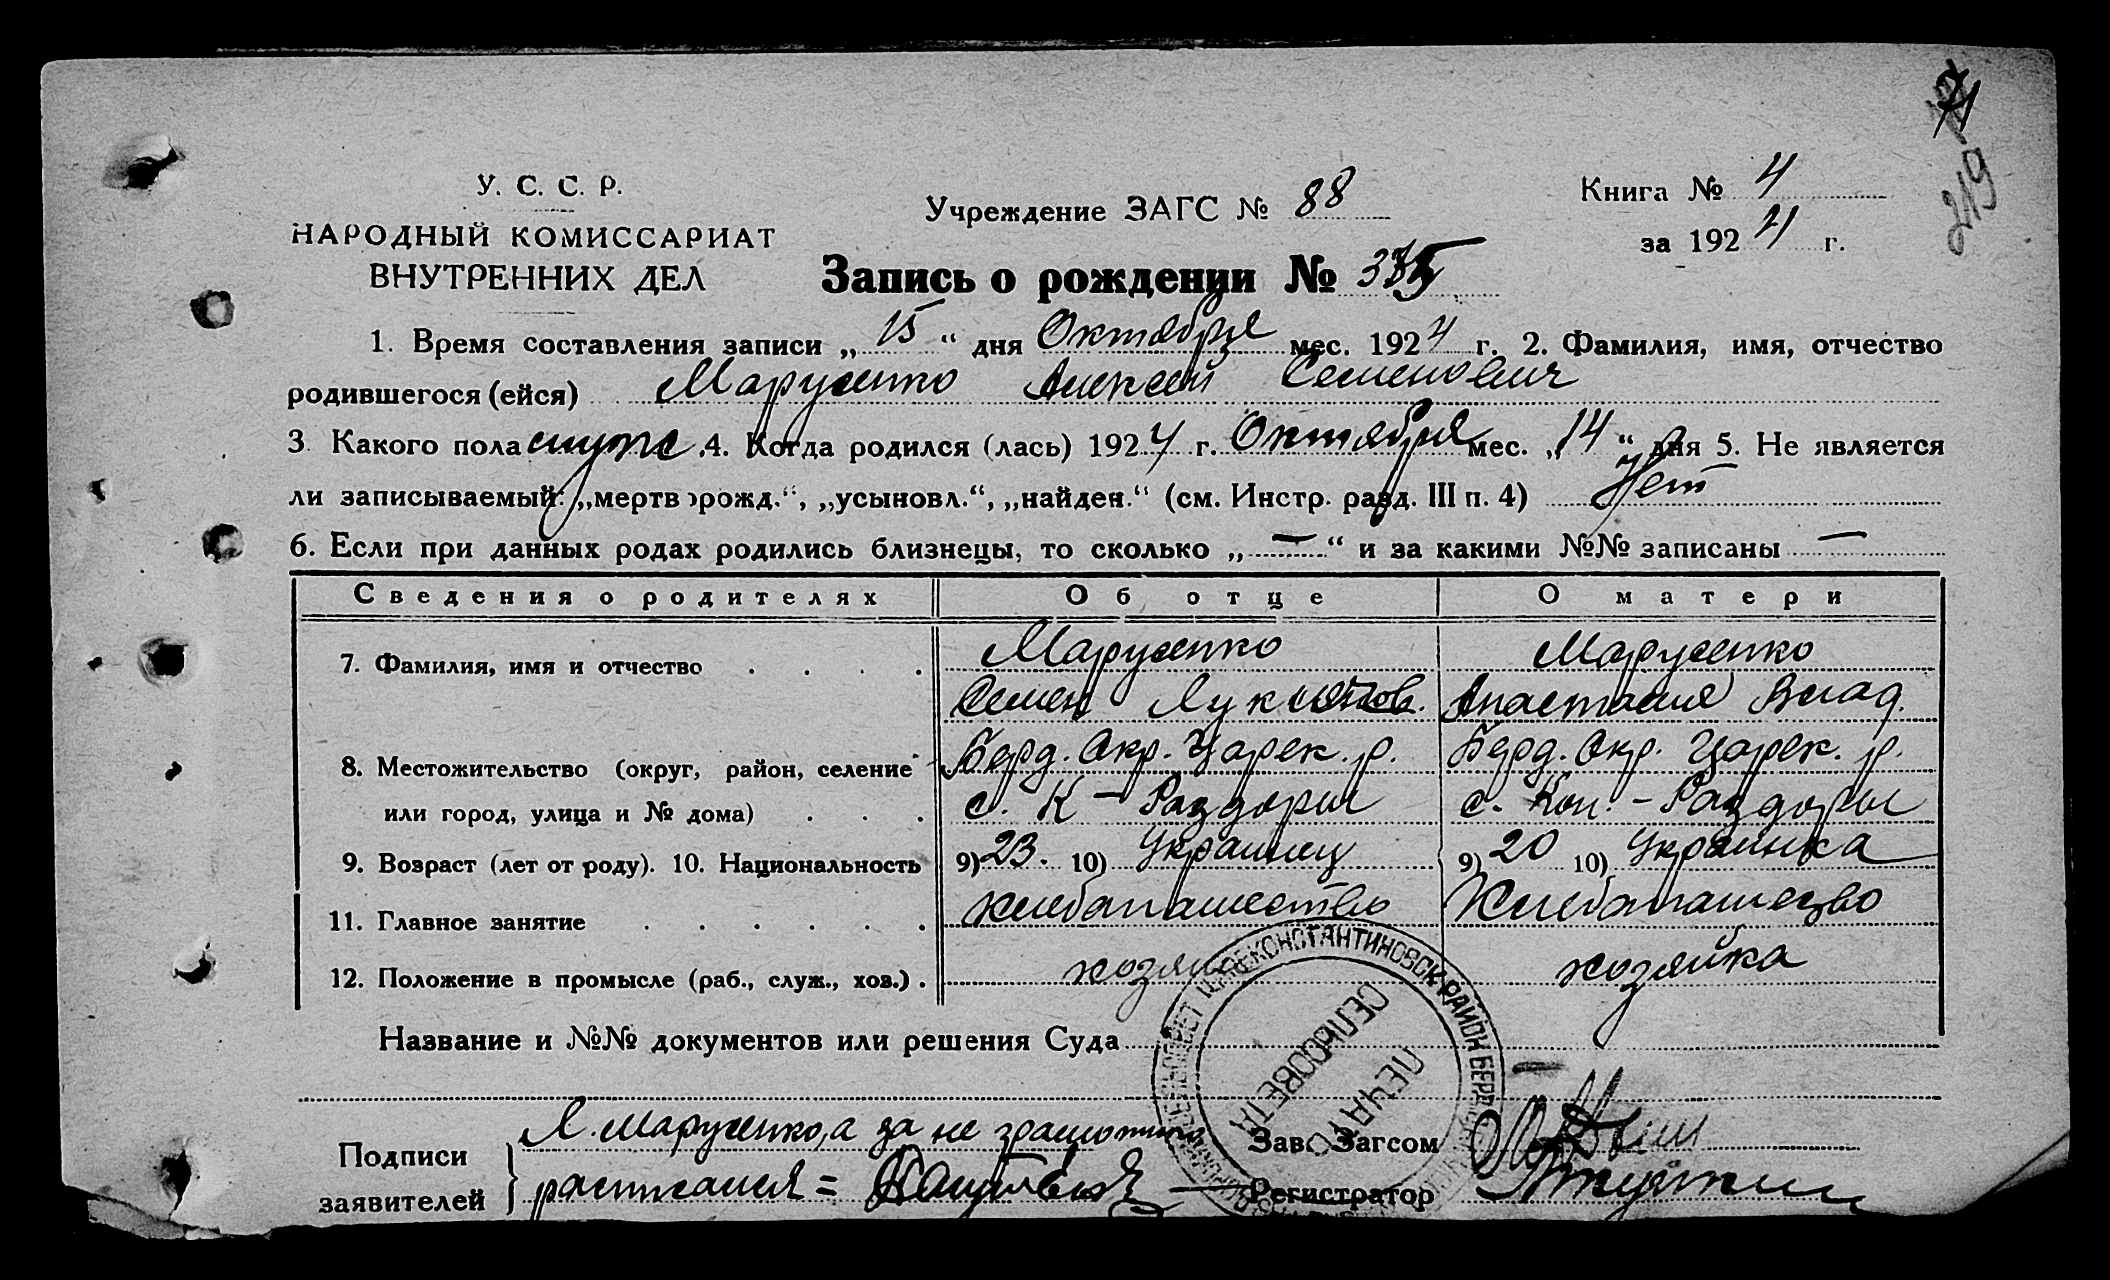 71
219
У. С. С. Р.
НАРОДНЫЙ КОМИССАРИАТ
ВНУТРЕННИХ ДЕЛ
Учреждение ЗАГС № 88
Книга № 4
за 1924 г.
Запись о рождении №
1. Время составления записи „15“ дня Октября мес. 1924 г. 2. Фамилия, имя, отчество
родившегося (ейся) Марученко Алексей Семенович
3. Какого пола муж. 4. Когда родился (лась) 1924 г. Октября мес. „14“ дня 5. Не является
ли записываемый: „мертворожд.“, „усыновл.“, „найден.“ (см. Инстр. разд. III п. 4) Нет
6. Если при данных родах родились близнецы, то сколько „—“ и за какими №№ записаны —
Сведения о родителях Об отце О матери
7. Фамилия, имя и отчество . . . . Марученко Марученко
Семен Лукьянов. Анастасия Влад.
8. Местожительство (округ, район, селение Берд. Окр. Царек. р. Берд. Окр. Царек. р.
или город, улица и № дома) . . . с. К - Раздоры с. Коп. - Раздоры
9. Возраст (лет от роду). 10. Национальность 9) 23. 10) Украинец 9) 20 10) Украинка
11. Главное занятие . . . . . . хлебопашество Хлебопашество
12. Положение в промысле (раб., служ., хоз.) . хозяин хозяйка
Название и №№ документов или решения Суда
ЦАРЕКОНСТАНТИНОВСК. РАЙОН БЕРД
ПЕЧАТЬ
СЕЛЬСОВЕТА
Подписи
заявителей
Л. Марученко, а за не грамотн
расписался =
Зав. Загсом
Регистратор